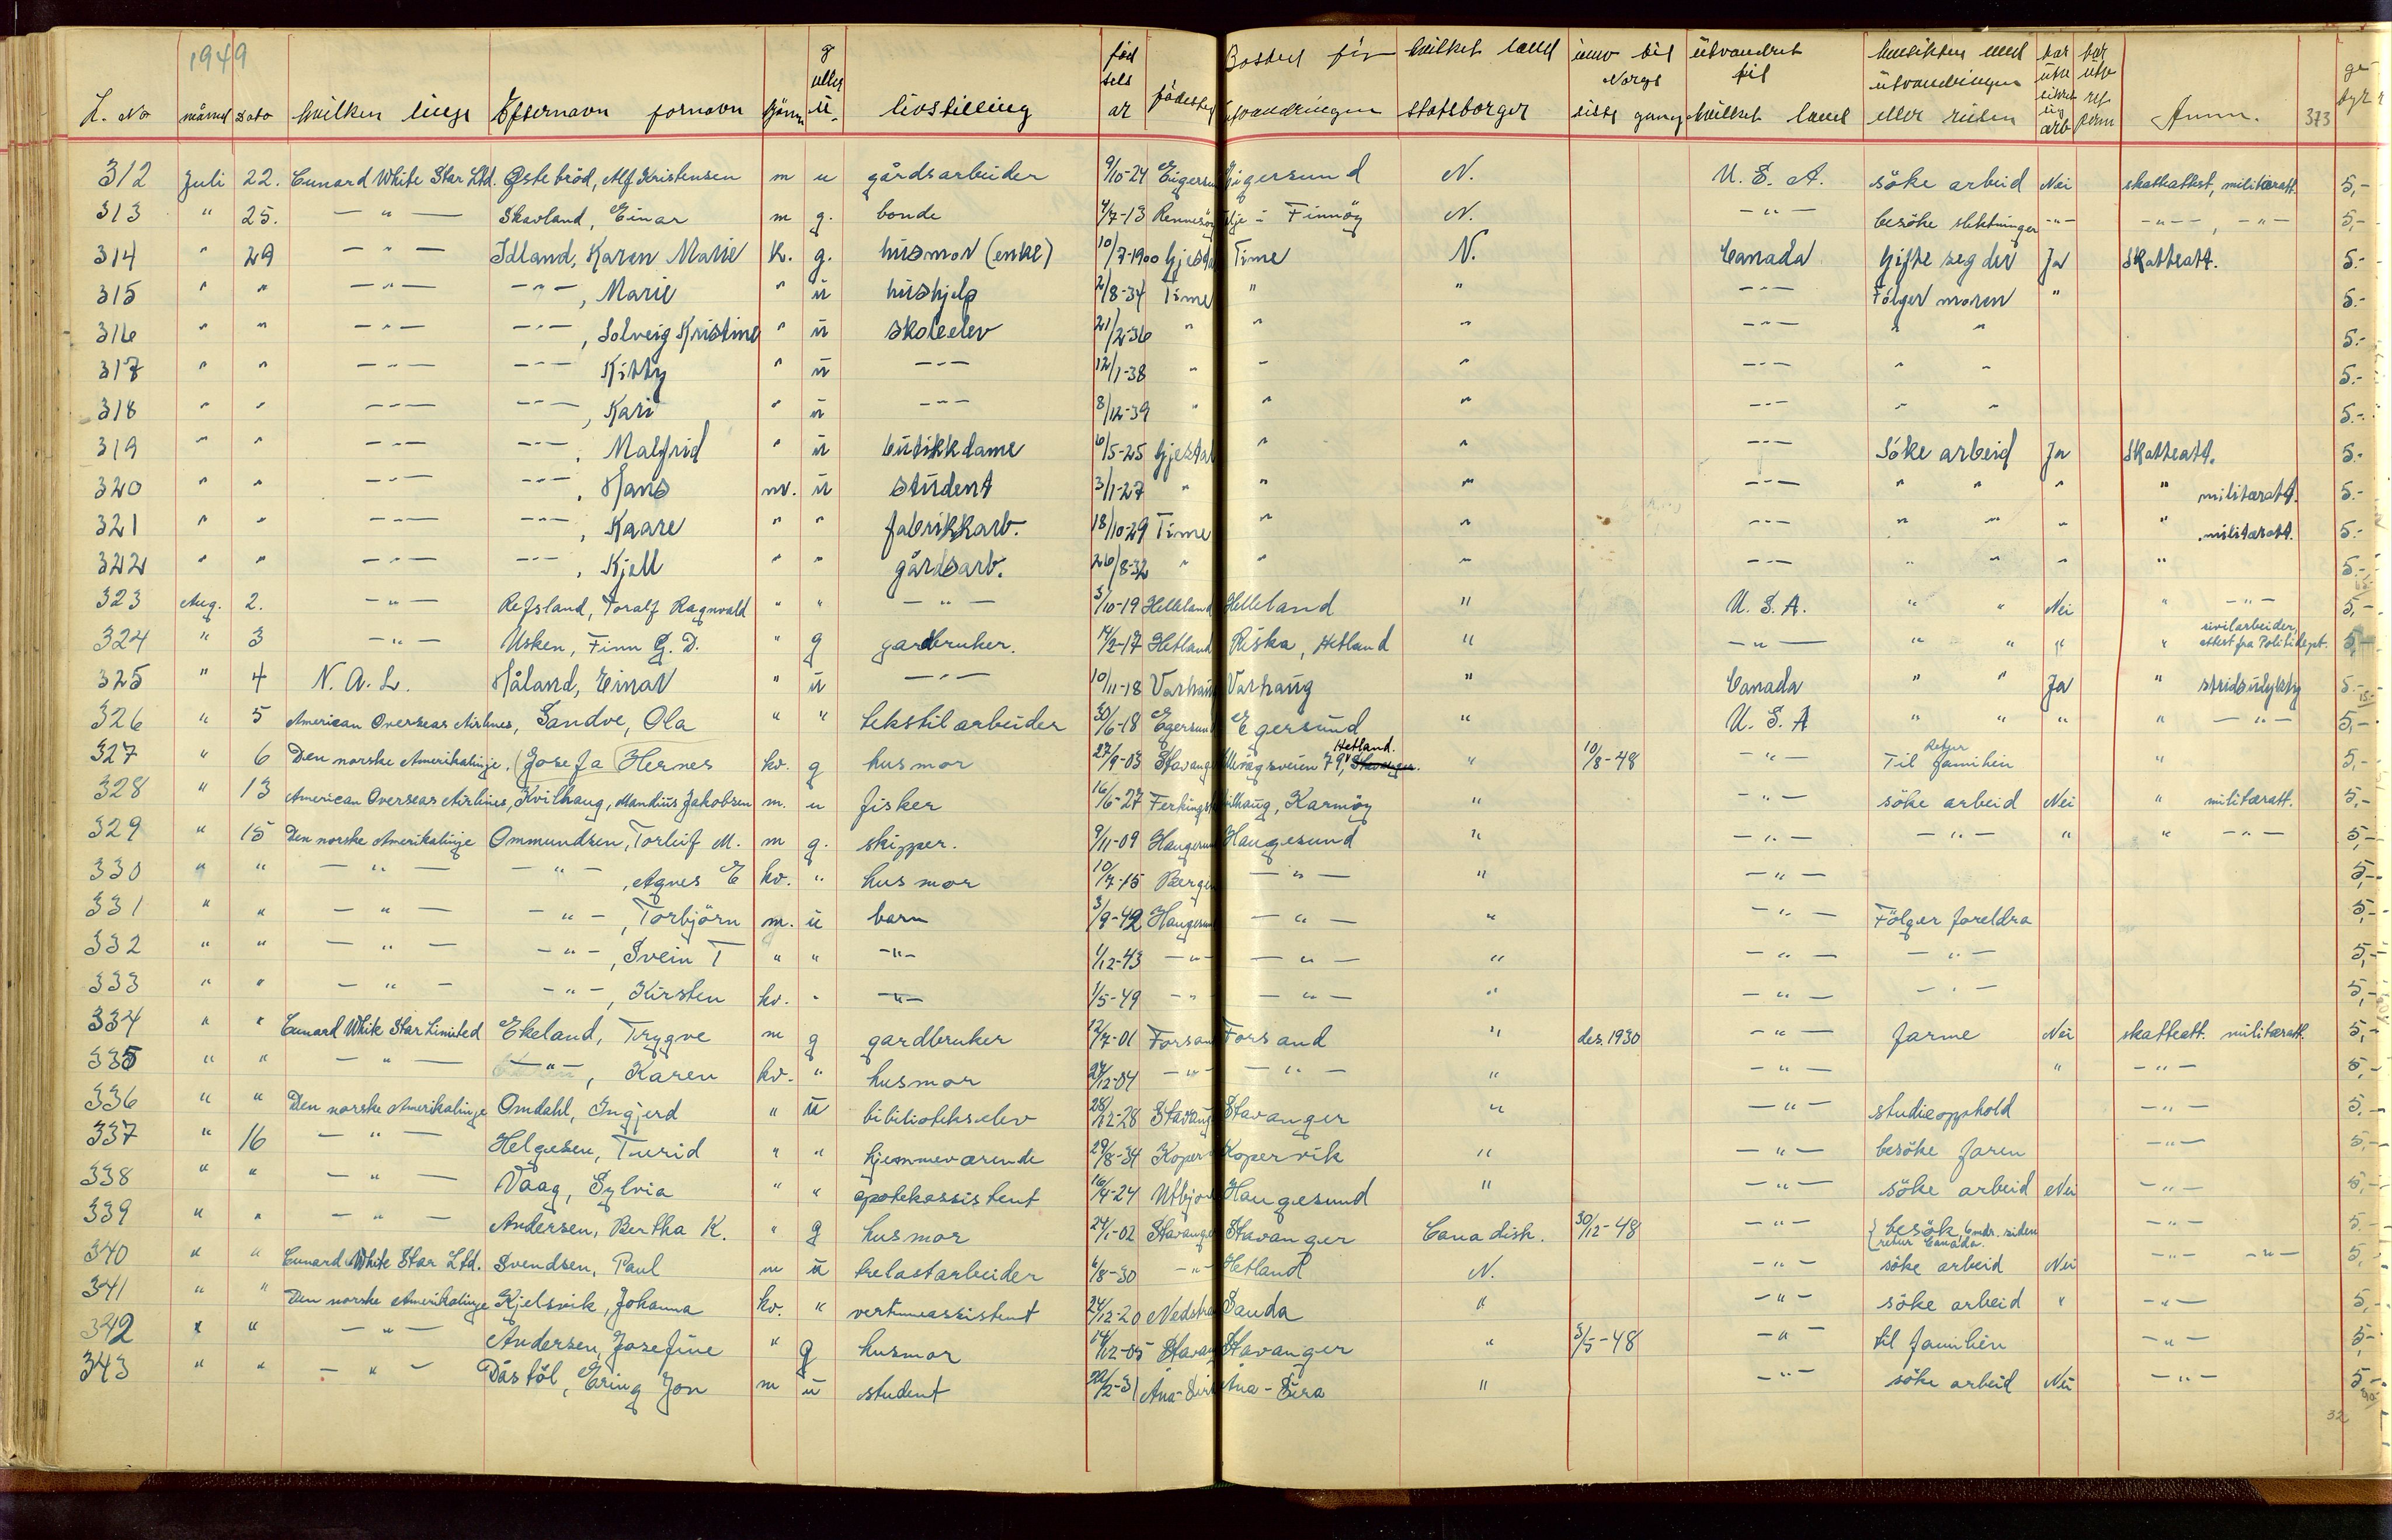 1949 373
L. No måned Dato hvilken linje Efternavn fornavn kjønn g eller u. livstilling fødsels år fødested Bosted før utvandringen hvilket land statsborger innv til Norge siste gang utvandret til hvilket land hensikten med utvandringen eller reisen Anm. gebyr
312 Juli 22. Cunard White Star Ltd. Østebröd, Alf Kristensen m u gårdsarbeider 9/10-24 Eigersun Eigersund N. U. S. A. söke arbeid Nei skatteattest, militæratt. 5,-
313 " 25. -"- Skavland, Einar m g. bonde 4/7-13 Rennesöy i Finnöy N. -"- besöke slektninger -"- -"-, -"- 5,-
314 " 29 -"- Idland, Karen Marie k. g. husmor (enke) 10/7-1900 Gjesda Time N. Canada Gifte seg der Ja Skatteatt. 5.-
315 " " -"- -"-, Marie " u hushjelp 2/8-34 Time " " -"- Fölger moren " 5.-
316 " " -"- -"-, Solveig Kristine " u skoleelev 21/2-36 " " " -"- " " 5.-
317 " " -"- -"- Kitty " u -"- 12/1-38 " " " -"- " " 5.-
318 " " -"- -"-, Kari " u -"- 8/12-39 " " " -"- " " 5.-
319 " " -"- -"-, Malfrid " u butikkdame 6/5-25 Gjesdal " " -"- Söke arbeid Ja Skatteatt. 5.-
320 " " -"- -"-, Hans m. u student 3/1-27 " " " -"- " " " " militæratt. 5.-
321 " " -"- -"-, Kaare " " fabrikkarb. 18/10-29 Time " " -"- " " " " militæratt. 5.-
322 " " -"- -"-, Kjell " " gårdsarb. 26/8-32 " " " -"- " " " " 5.-
323 Aug. 2. -"- Refsland, Toralf Ragnvald " " -"- 3/10-19 Helleland Helleland " U. S. A. " " Nei " -"- 5,-
324 " 3 -"- Usken, Finn G. D. " g gardbruker. 14/2-17 Hetland Riska, Hetland " -"- " " " " sivilarbeider attest fra Politidept. 5,-
325 " 4 N. A. L. Håland, Einar " u -"- 10/11-18 Varhaug Varhaug " Canada " " Ja " stridsudyktig 5.-
326 " 5 American Overseas Airlines, Sandve, Ola " " tekstilarbeider 30/6-18 Egersund Egersund " U. S. A " " " " -"- 5,-
327 " 6 Den norske Amerikalinje, Josefa Hernes kv. g husmor 27/9-03 Stavang 79, Stavanger. Hetland. " 10/8-48 -"- Retur Til familien " 5,-
328 " 13 American Overseas Airlines, Kvilhaug, Mandius Jakobsen m. u fisker 16/6-27 Ferkingst Kvilhaug, Karmöy " -"- söke arbeid Nei " militæratt. 5,-
329 " 15 Den norske Amerikalinje Ommundsen, Torleif M. m g. skipper. 9/11-09 Haugesun Haugesund " -"- -"- " " -"- 5,-
330 " " -"- -"-, Agnes E kv. " husmor 10/7-15 Bergen -"- " -"- 5,-
331 " " -"- -"-, Torbjörn m. u barn 3/9-42 Haugesun -"- " -"- Fölger foreldra 5,-
332 " " -"- -"-, Svein T " " -"- 1/12-43 -"- -"- " -"- -"- 5,-
333 " " -"- -"-, Kirsten kv. " -"- 1/5-49 -"- -"- " -"- -"- 5,-
334 " " Cunard White Star Limited Ekeland, Trygve m g gardbruker 12/7-01 Forsan Forsand " des. 1930 -"- farme Nei skatteatt. militæratt. 5,-
335 " " -"- -"-, Karen kv. " husmor 24/12-04 -"- -"- " -"- " -"- 5,-
336 " " Den norske Amerikalinje Omdahl, Ingjerd " u bibilioteks elev 28/12-28 Stavang Stavanger " -"- studieopphold -"- 5.-
337 " 16 -"- Helgesen, Turid " " hjemmeværende 29/8-34 Koper Kopervik " -"- besöke faren -"- 5,-
338 " " -"- Vaag, Sylvia " " apotekassistent 16/4-24 Utbjo Haugesund " -"- söke arbeid Nei -"- 5,-
339 " " -"- Andersen, Bertha K. " g husmor 24/1-02 Stavange Stavanger Canadisk. 30/12-48 -"- besök, 6 mdr. siden retur Canada. -"- 5.-
340 " " Cunard White Star Ltd. Svendsen, Paul m u trelastarbeider 6/8-30 -"- Hetland N. -"- söke arbeid Nei -"- -"- 5,
341 " " Den norske Amerikalinje Kjelsvik, Johanna kv. " 24/12-20 Nedstra Sauda " -"- söke arbeid " -"- 5,-
342 " " -"- Andersen, Josefine " g husmor 14/12-05 Stavan Stavanger " 3/5-48 -"- til familien -"- 5,-
343 " " -"- Dåstöl, Ering Jon m u student 22/2-31 Ana-Sira Ana-Sira " -"- söke arbeid Nei -"- 5,-
32